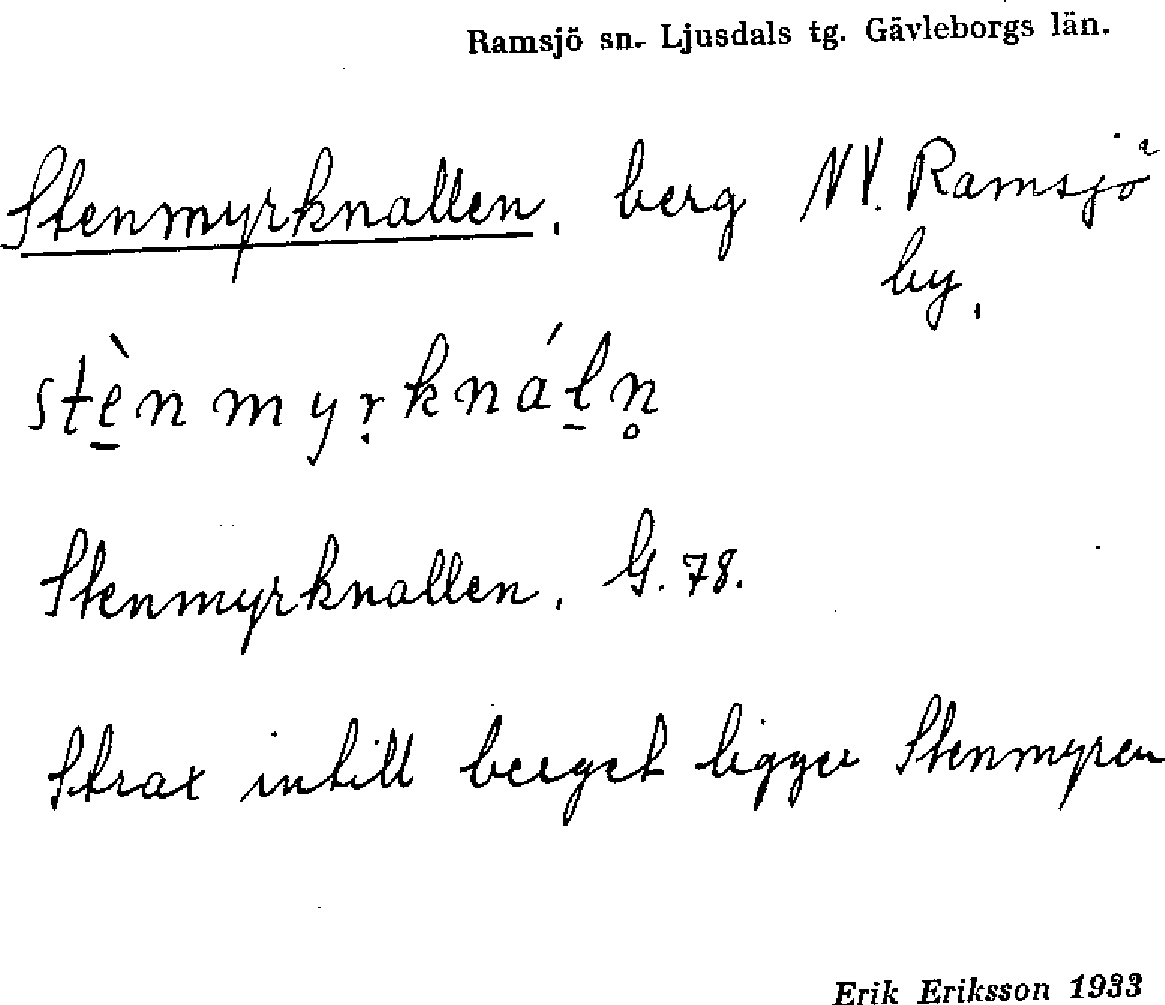 Ramsjö sn. Ljusdals tg. Gävleborgs län.
Stenmyrknallen, berg NV. Ramsjö
by.
stè̠nmyṛknáḻn̥
Stenmyrknallen, G. 78.
Strax intill berget ligger Stenmyren
Erik Eriksson 1933